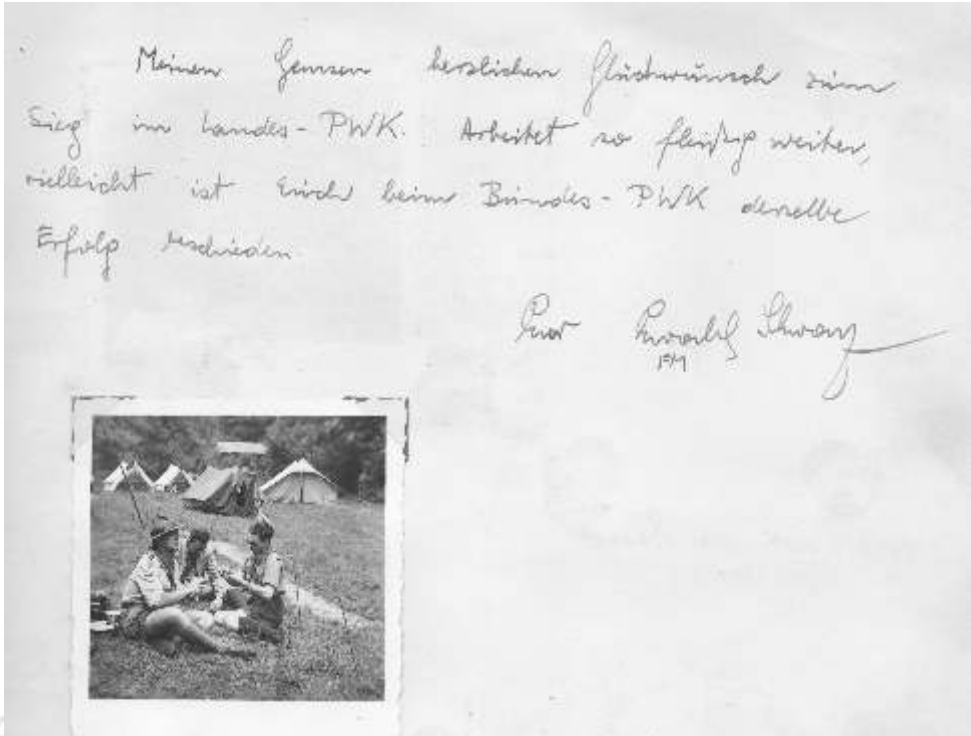 Meinen Gemsen herzlichen Glückwunsch zum
Sieg im Landes-PWK. Arbeitet so fleißig weiter,
vielleicht ist Euch beim Bundes-PWK derselbe
Erfolg beschieden.
Euer Ewald Schwarz
FM